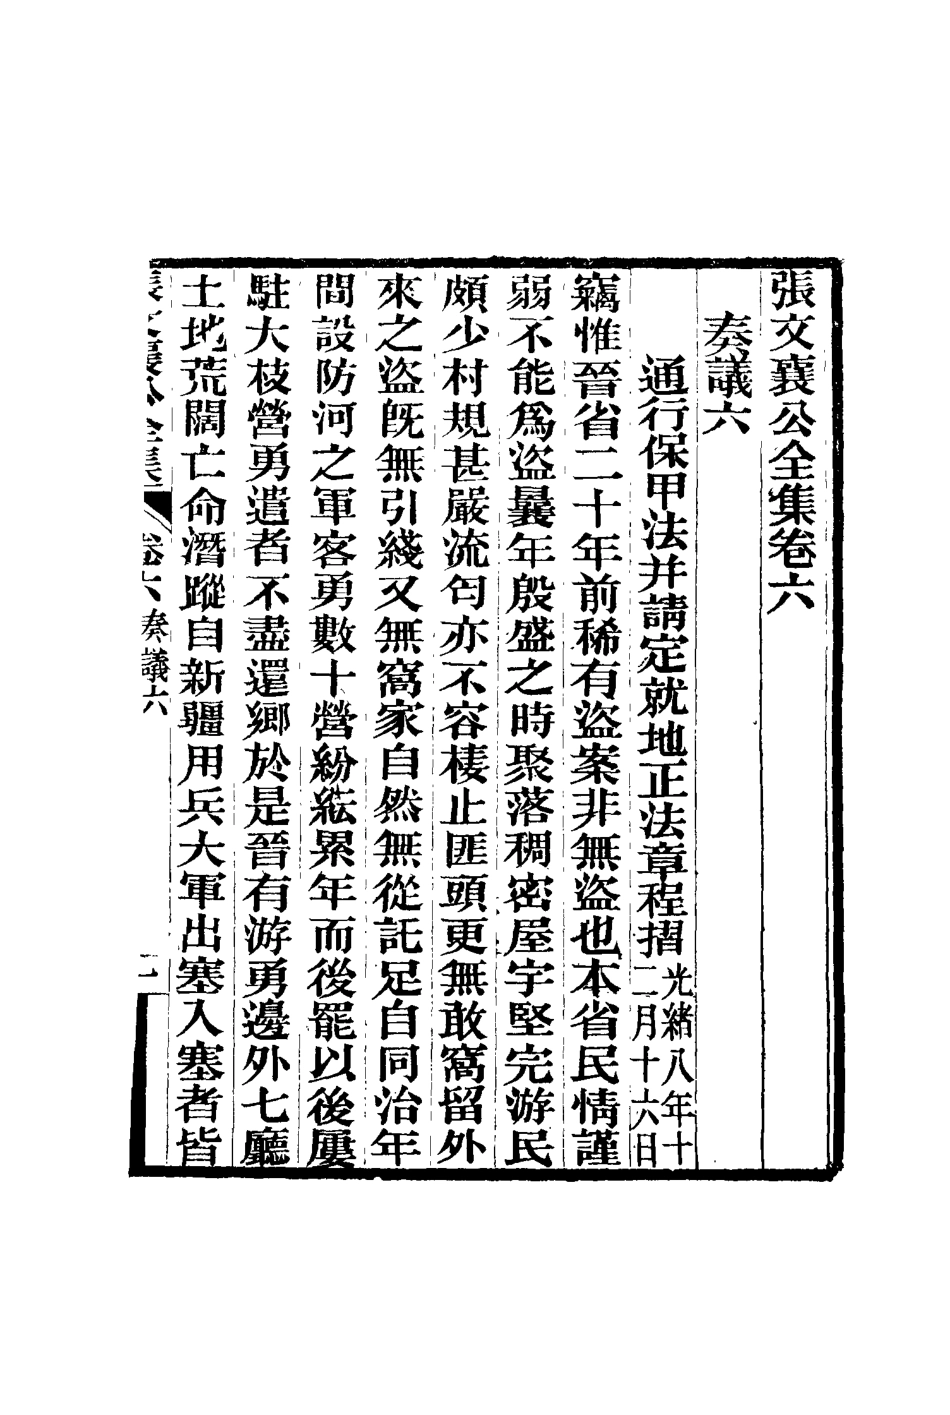 張文襄公全集卷六
奏議六
通行保甲法并請定就地正法章程摺光緒八年十二月十六日
竊惟晉省二十年前稀有盜案非無盜也本省民情謹
弱不能爲盜曩年殷盛之時聚落稠密屋宇堅完游民
頗少村規甚嚴流匄亦不容棲止匪頭更無敢窩留外
來之盜旣無引綫又無窩家自然無從託足自同治年
間設防河之軍客勇數十營紛紜累年而後罷以後屢
駐大枝營勇遣者不盡還鄉於是晉有游勇邊外七廳
土地荒闊亡命潛蹤自新疆用兵大軍出塞入塞者皆
張文襄公全集 卷六 奏議六